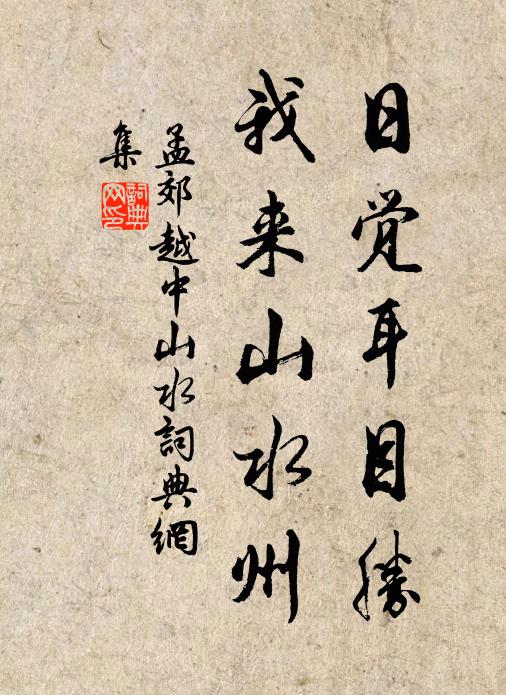 日觉耳目勝
我来山水州
孟郊越中山水詞典網
集
詞典
网印